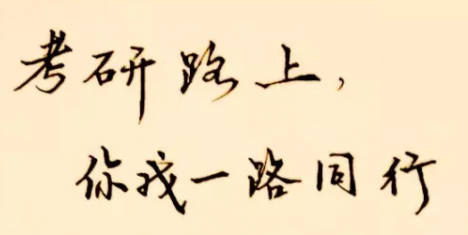 考研路上，
你我一路同行